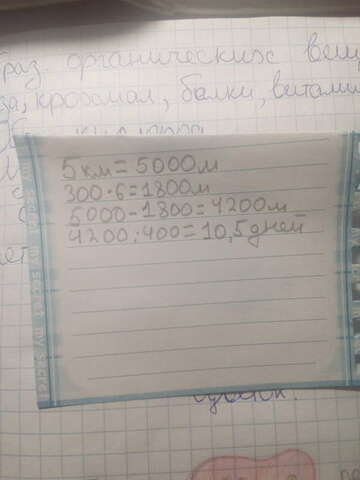 раз. органических вещ
за, крахмал, белки, витами
5км=5000м
300·6=1800м
5000-1800=4200м
4200:400=10,5дней
my secret my secret